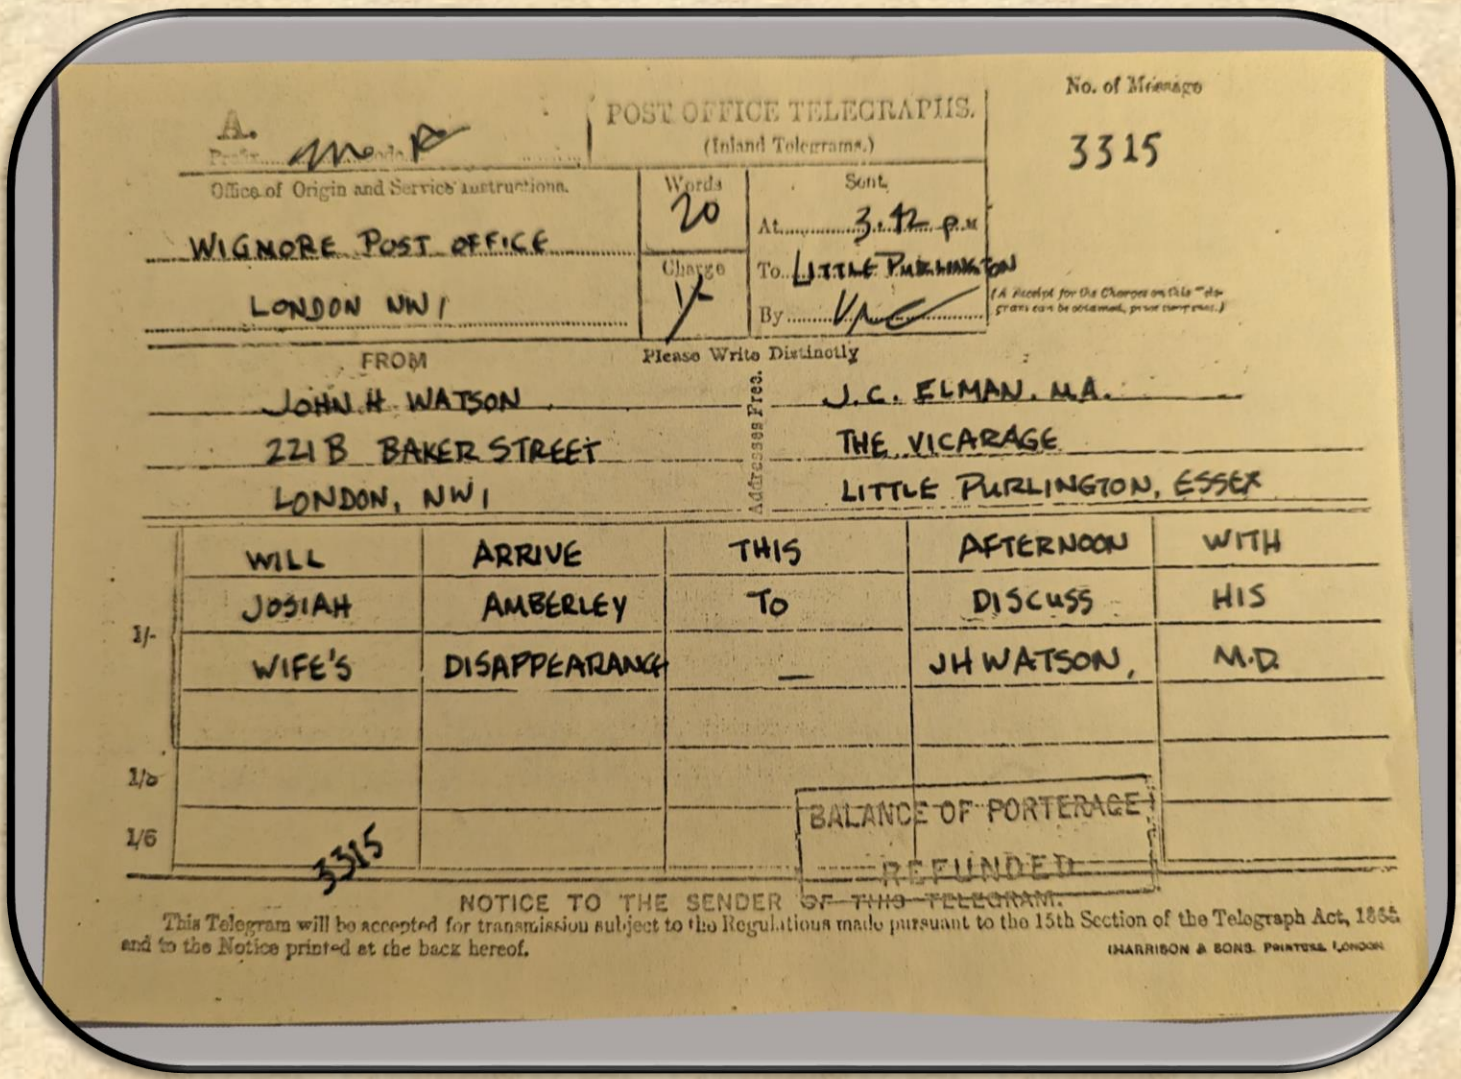 No. of Message
3315
A.
POST OFFICE TELEGRAPHS.
(Inland Telegrams.)
Prefix Code
Office of Origin and Service Instructions.
WIGMORE POST OFFICE
LONDON NW1
Words
20
Charge
1/-
Sent
At 3.42 p.m
To LITTLE PURLINGTON
By
(A Receipt for the Charges on this Tele-
gram can be obtained, price twopence.)
FROM
Please Write Distinctly
JOHN H WATSON
221B BAKER STREET
LONDON, NW1
Addresses Free.
J.C. ELMAN. M.A.
THE VICARAGE
LITTLE PURLINGTON, ESSEX
WILL ARRIVE THIS AFTERNOON WITH
JOSIAH AMBERLEY TO DISCUSS HIS
1/-
WIFE'S DISAPPEARANCE — JH WATSON, M.D.
1/6
3315
BALANCE OF PORTERAGE
REFUNDED
NOTICE TO THE SENDER OF THIS TELEGRAM.
This Telegram will be accepted for transmission subject to the Regulations made pursuant to the 15th Section of the Telegraph Act, 1885
and to the Notice printed at the back hereof.
HARRISON & SONS. PRINTERS, LONDON